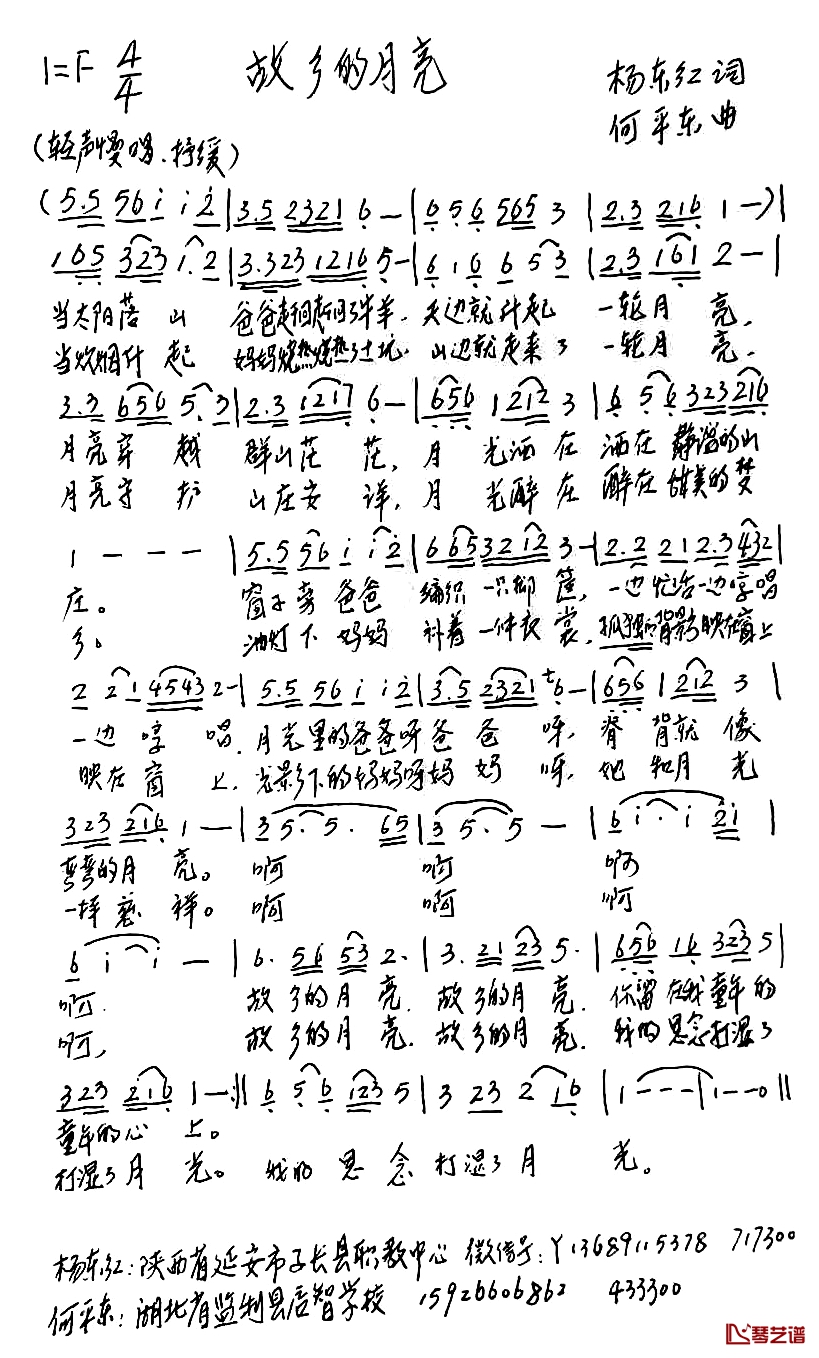 1=F 4/4 故乡的月亮 杨东红词
何平东曲
(轻声慢唱、抒缓)
(5.5 56 i i 2 | 3.5 2321 6 — | 6 5 6 565 3 | 2.3 216 1 —) |
165 323 1. 2 | 3.323 1216 5 — | 6 16 6 53 | 2.3 161 2 — |
当太阳落山 爸爸赶回赶回了牛羊，天边就升起 一轮月亮，
当炊烟升起 妈妈烧热烧热了土坑，山边就走来了一轮月亮，
3.3 656 5. 3 | 2.3 1217 6 — | 656 1 212 3 | 6 56 323 216 |
月亮穿越 群山茫茫，月光洒在 洒在静谧的山
月亮守护 山庄安详，月光醉在 醉在甜美的梦
1 — — — | 5.5 56 i i 2 | 665 32 12 3 — | 2.2 21 2.3 432 |
庄。 窗子旁爸爸 编织一只柳筐，一边忙活一边哼唱
乡。 油灯下妈妈 补着一件衣裳，孤独的背影映在窗上
2 21 4543 2 — | 5.5 56 i i2 | 3.5 2321 6 — | 656 1 212 3 |
一边哼唱，月光里的爸爸呀爸爸呀，脊背就像
映在窗上，光影下的妈妈呀妈妈呀，她和月光
323 216 1 — | 3 5. 5. 65 | 3 5. 5 — | 6 i. i 2i |
弯弯的月亮。 啊 啊 啊
一样慈祥。 啊 啊 啊
6 i i — | 6. 56 53 2. | 3. 21 23 5. | 656 16 323 5 |
啊， 故乡的月亮，故乡的月亮，你留在我童年的
啊， 故乡的月亮，故乡的月亮，我的思念打湿了
323 216 1 — :|| 6 56 123 5 | 3 23 2 16 | 1 — — — | 1 — — 0 ||
童年的心上。
打湿了月光。 我的思念打湿了月光。
杨东红：陕西省延安市子长县职教中心 微信号：Y13689115378 717300
何平东：湖北省监利县启智学校 15926606862 433300
琴艺谱